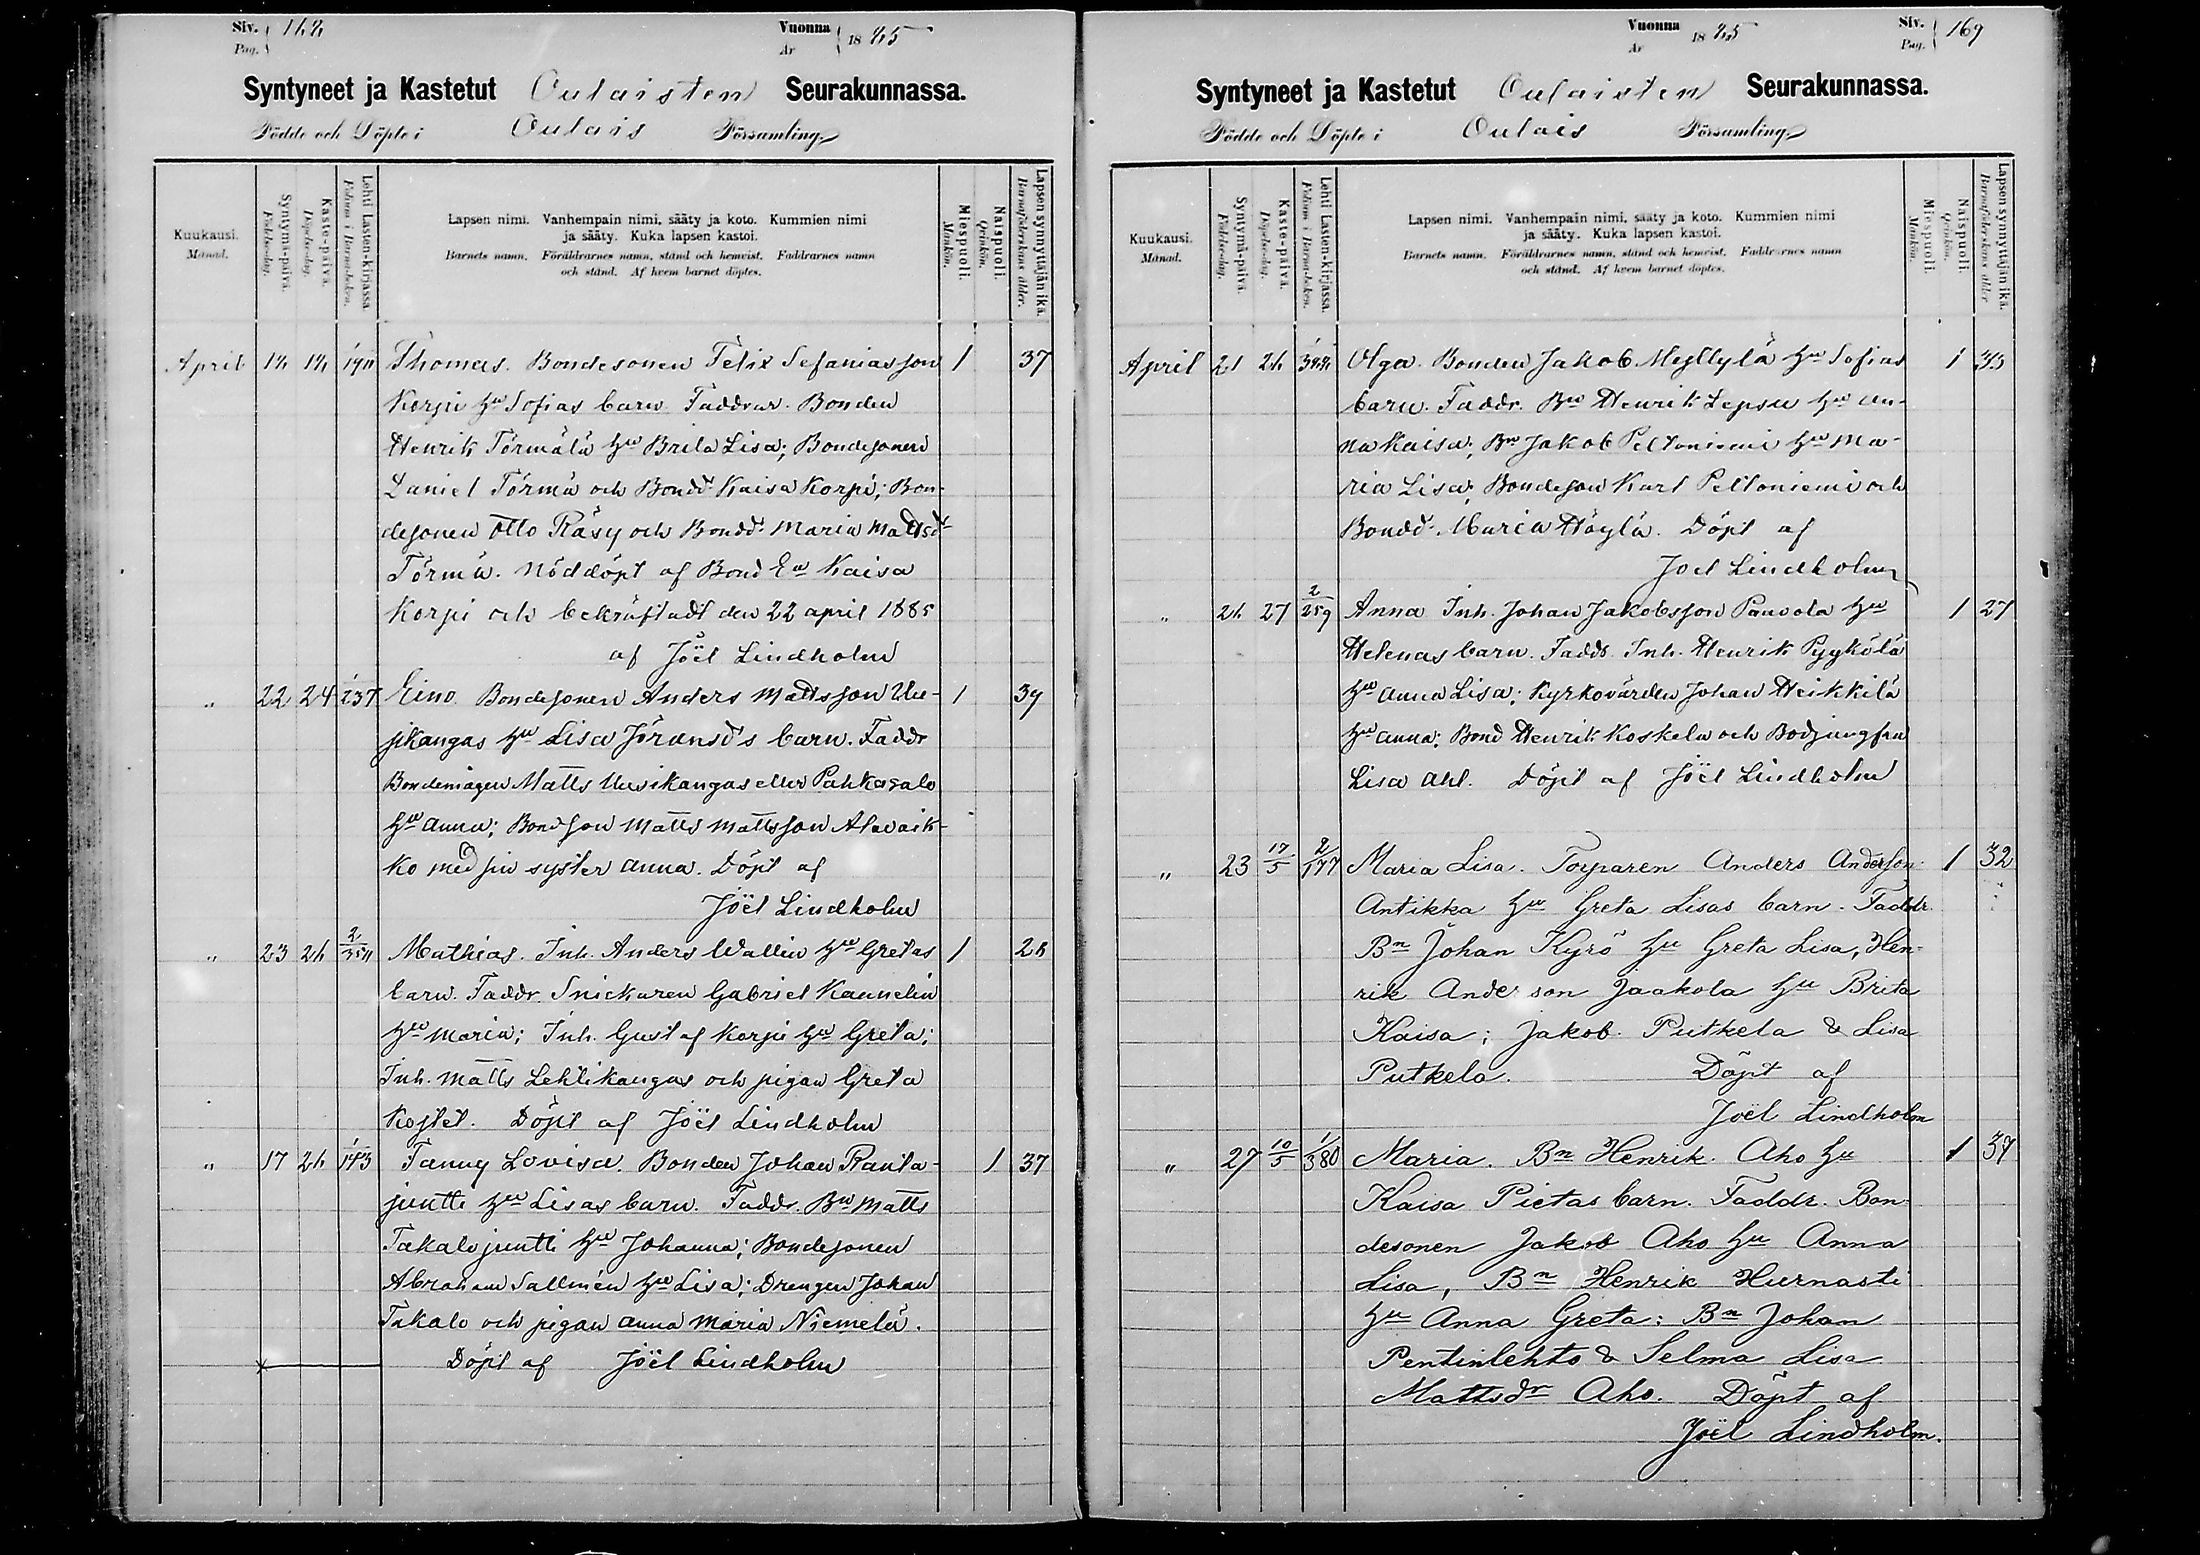 Siv. Pag. 168
Vuonna År 1885
Syntyneet ja Kastetut Oulaisten Seurakunnassa.
Födde och Döpte i Oulais Församling
Kuukausi. Månad.
Syntymä-päivä. Födelse-dag.
Kaste-päivä. Döpelse-dag.
Lehti Lasten-kirjassa. Folium i Barna-boken.
Lapsen nimi. Vanhempain nimi, sääty ja koto. Kummien nimi
ja sääty. Kuka lapsen kastoi.
Barnets namn. Föräldrarnes namn, stånd och hemvist. Faddrarnes namn
och stånd. Af hvem barnet döptes.
Miespuoli. Mankön.
Naispuoli. Qvinkön.
Lapsen synnyttäjän ikä. Barnaföderskans ålder.
April 18 18 Thomas. Bondesonen Felix Sefaniasson 1 37
Korpi hu Sofias barn. Faddrar. Bonden
Henrik Törmälä hu Brita Lisa; Bondesonen
Daniel Törmä och Bondd. Kaisa Korpi; Bon-
desonen Otto Räsy och Bondd. Maria Mattsdr
Törmä. Nöddöpt af Bond Eu Kaisa
Korpi och bekräftadt den 22 april 1885
af Joël Lindholm
" 22 24 1/237 Eino. Bondesonen Anders Mattsson Uu- 1 39
sikangas hu Lisa Jöransd's barn. Faddr
Bondemågen Matts Uusikangas eller Pahkasalo
hu Anna; Bondson Matts Mattsson Alavaik-
ko med sin syster Anna. Döpt af
Joël Lindholm
" 23 26 2/358 Mathias. Inh. Anders Wallin hu Gretas 1 28
barn. Faddr Snickaren Gabriel Kannelin
hu Maria; Inh. Gustaf Korpi hu Greta;
Inh. Matts Lehtikangas och pigan Greta
Kostet. Döpt af Joël Lindholm
" 17 26 1/143 Fanny Lovisa. Bonden Johan Ranta- 1 37
juntti hu Lisas barn. Faddr. Bn Matts
Takalojuntti hu Johanna; Bondesonen
Abraham Sallmén hu Lisa; Drengen Johan
Takalo och pigan Anna Maria Niemelä.
Döpt af Joël Lindholm
Vuonna År 1885
Siv. Pag. 169
Syntyneet ja Kastetut Oulaisten Seurakunnassa.
Födde och Döpte i Oulais Församling
Kuukausi. Månad.
Syntymä-päivä. Födelse-dag.
Kaste-päivä. Döpelse-dag.
Lehti Lasten-kirjassa. Folium i Barna-boken.
Lapsen nimi. Vanhempain nimi, sääty ja koto. Kummien nimi
ja sääty. Kuka lapsen kastoi.
Barnets namn. Föräldrarnes namn, stånd och hemvist. Faddrarnes namn
och stånd. Af hvem barnet döptes.
Miespuoli. Mankön.
Naispuoli. Qvinkön.
Lapsen synnyttäjän ikä. Barnaföderskans ålder.
April 21 26 Olga. Bonden Jakob Myllylä hu Sofias 1
barn. Faddr. Bn Henrik Lepsu hu An-
na Kaisa; Bn Jakob Peltoniemi hu Ma-
ria Lisa; Bondeson Karl Peltoniemi och
Bondd. Maria Höylä. Döpt af
Joel Lindholm
" 26 27 2/259 Anna Inh. Johan Jakobsson Paavola hu 1 27
Helenas barn. Faddr. Inh. Henrik Pyykölä
hu Anna Lisa; Kyrkovärden Johan Heikkilä
hu Anna; Bond Henrik Koskela och Bodjungfru
Lisa Ahl. Döpt af Joël Lindholm
" 23 17/5 2/177 Maria Lisa. Torparen Anders Andersson 1 32
Antikka hu Greta Lisas barn. Faddr.
Bn Johan Kyrö hu Greta Lisa, Hen-
rik Anderson Jaakola hu Brita
Kaisa; Jakob Putkela & Lisa
Putkela. Döpt af
Joël Lindholm
" 27 10/5 1/380 Maria. Bn Henrik Aho hu 1 37
Kaisa Pietas barn. Faddr. Bon-
desonen Jakob Aho hu Anna
Lisa, Bn Henrik Hurnasti
hu Anna Greta; Bn Johan
Pentinlehto & Selma Lisa
Mattsdr Aho. Döpt af
Joël Lindholm.